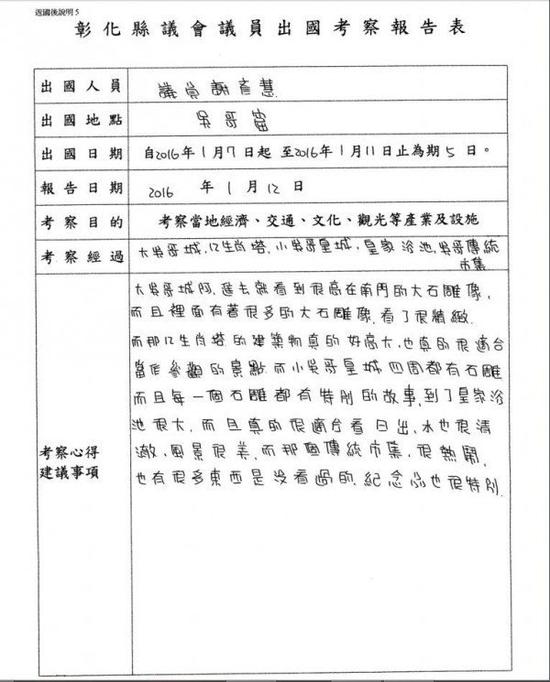 返國後說明 5
彰化縣議會議員出國考察報告表
出國人員 議員謝彥慧
出國地點 吳哥窟
出國日期 自2016年1月7日起 至2016年1月11日止為期5日。
報告日期 2016 年 1 月 12 日
考察目的 考察當地經濟、交通、文化、觀光等產業及設施
考察經過 大吳哥城,12生肖塔,小吳哥皇城,皇家浴池,吳哥傳統
市集
大吳哥城阿,進去就看到很高在南門的大石雕像,
而且裡面有著很多的大石雕像,看了很精緻.
而那12生肖塔的建築物真的好高大,也真的很適合
當作參觀的景點.而小吳哥皇城四周都有石雕
而且每一個石雕都有特別的故事,到了皇家浴
池很大,而且真的很適合看日出,水也很清
考察心得
建議事項
澈,風景很美,而那個傳統市集,很熱鬧,
也有很多東西是沒看過的,紀念品也很特別.